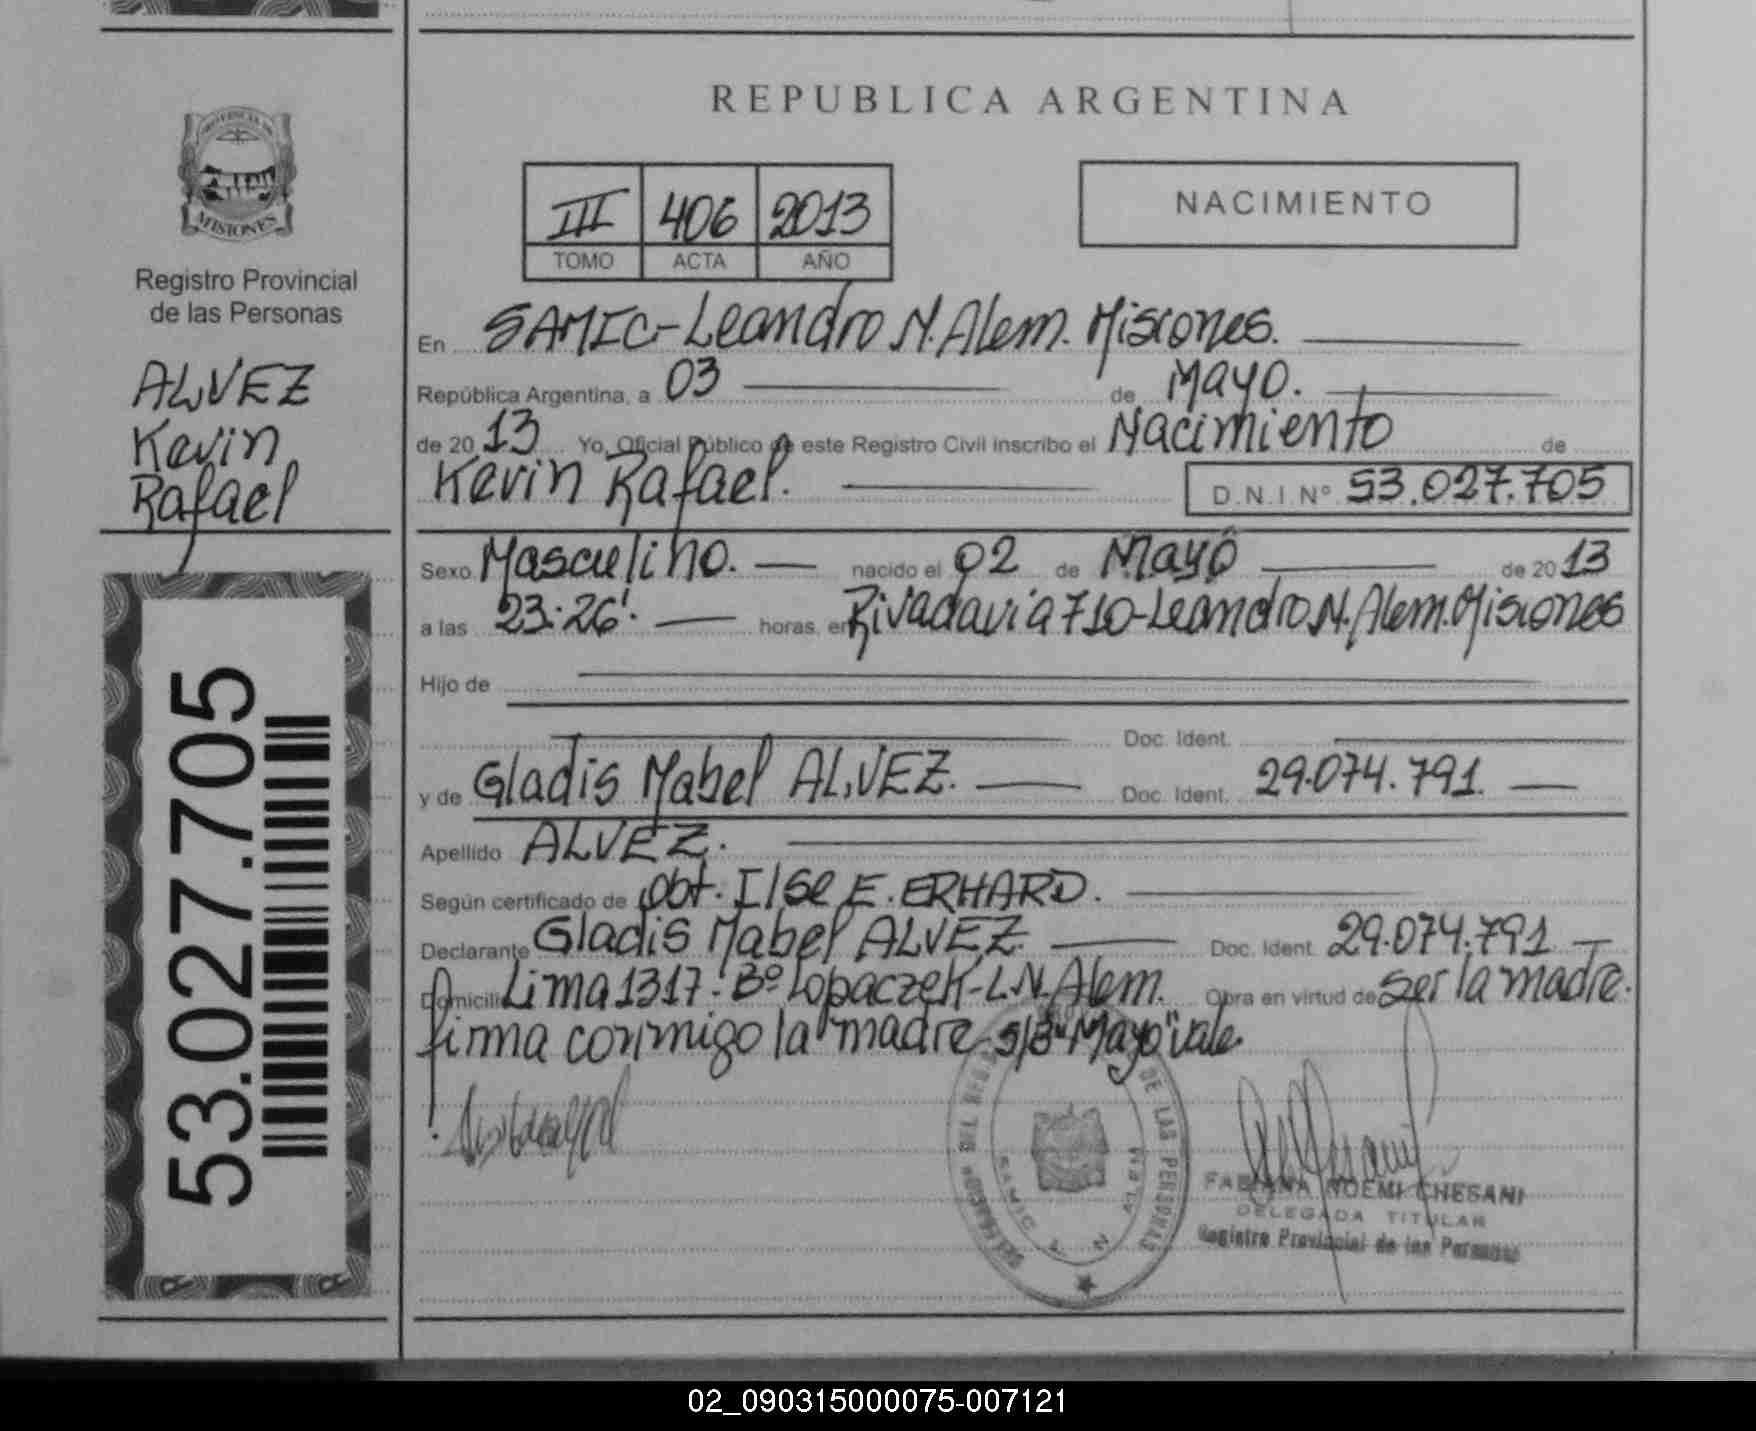 REPUBLICA ARGENTINA
III 406 2013
TOMO ACTA AÑO
NACIMIENTO
MISIONES
Registro Provincial
de las Personas
ALVEZ
Kevin
Rafael
53.027.705
En SAMIC-Leandro N. Alem. Misiones.
República Argentina, a 03 de Mayo.
de 2013 Yo, Oficial Público de este Registro Civil inscribo el Nacimiento de
Kevin Rafael. D.N.I. Nº 53.027.705
Sexo Masculino. nacido el 02 de Mayo de 2013
a las 23:26'. horas, en Rivadavia 710-Leandro N. Alem. Misiones
Hijo de
Doc. Ident.
y de Gladis Mabel ALVEZ. Doc. Ident. 29.074.791.
Apellido ALVEZ.
Según certificado de Obt. Ilse E. ERHARD.
Declarante Gladis Mabel ALVEZ. Doc. Ident. 29.074.791
Domicilio Lima 1317-Bº Lopaczek-L.N. Alem. Obra en virtud de ser la madre.
firma conmigo la madre s/r "Mayo" vale.
DEL REG DE LAS PERSONAS
SAMIC L N ALEM
FABIANA NOEMI CHESANI
DELEGADA TITULAR
Registro Provincial de las Personas
02_090315000075-007121